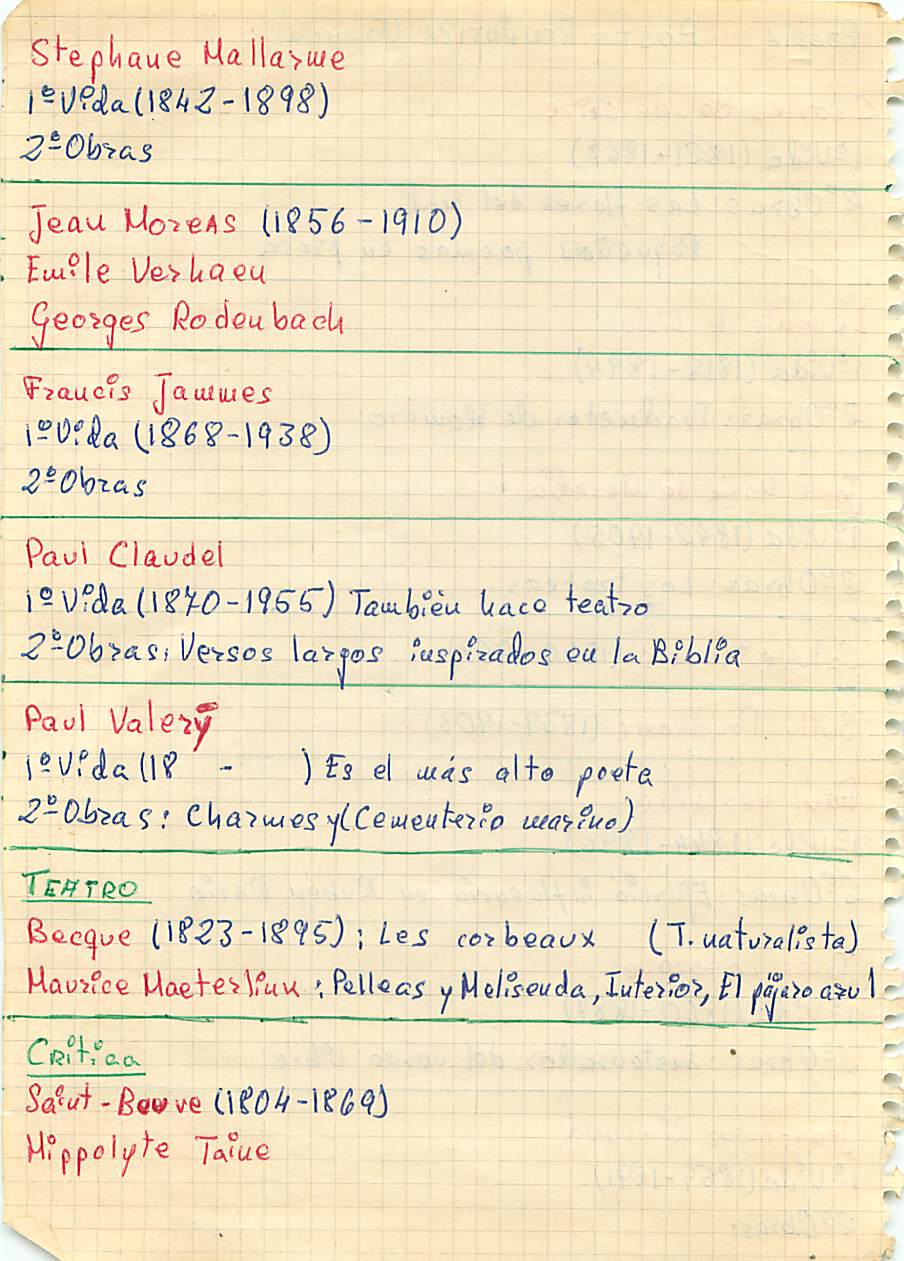 Stephane Mallarme
1º Vida (1842-1898)
2º Obras
Jean Moreas (1856-1910)
Emile Verhaen
Georges Rodenbach
Francis Jammes
1º Vida (1868-1938)
2º Obras
Paul Claudel
1º Vida (1870-1955) También hace teatro
2º Obras: Versos largos inspirados en la Biblia
Paul Valery
1º Vida (18 - ) Es el más alto poeta
2º Obras: Charmes y (Cementerio marino)
TEATRO
Becque (1823-1895): Les corbeaux (T. naturalista)
Maurice Maeterlink: Pelleas y Melisenda, Interior, El pájaro azul
Crítica
Saint-Beuve (1804-1869)
Hippolyte Taine